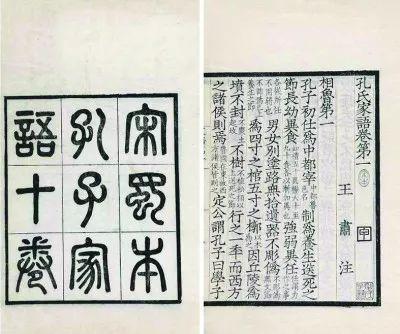 宋蜀本
孔子家
語十卷
孔氏家語卷第一
王肅注
相魯第一
孔子初仕為中都宰 中都魯邑 制為養生送死之
節長幼異食 強弱異任
男女別塗路無拾遺器不彫偽
為四寸之棺五寸之槨 因丘陵為
墳不封 不樹 行之一年而西方
之諸侯則焉 定公謂孔子曰學子